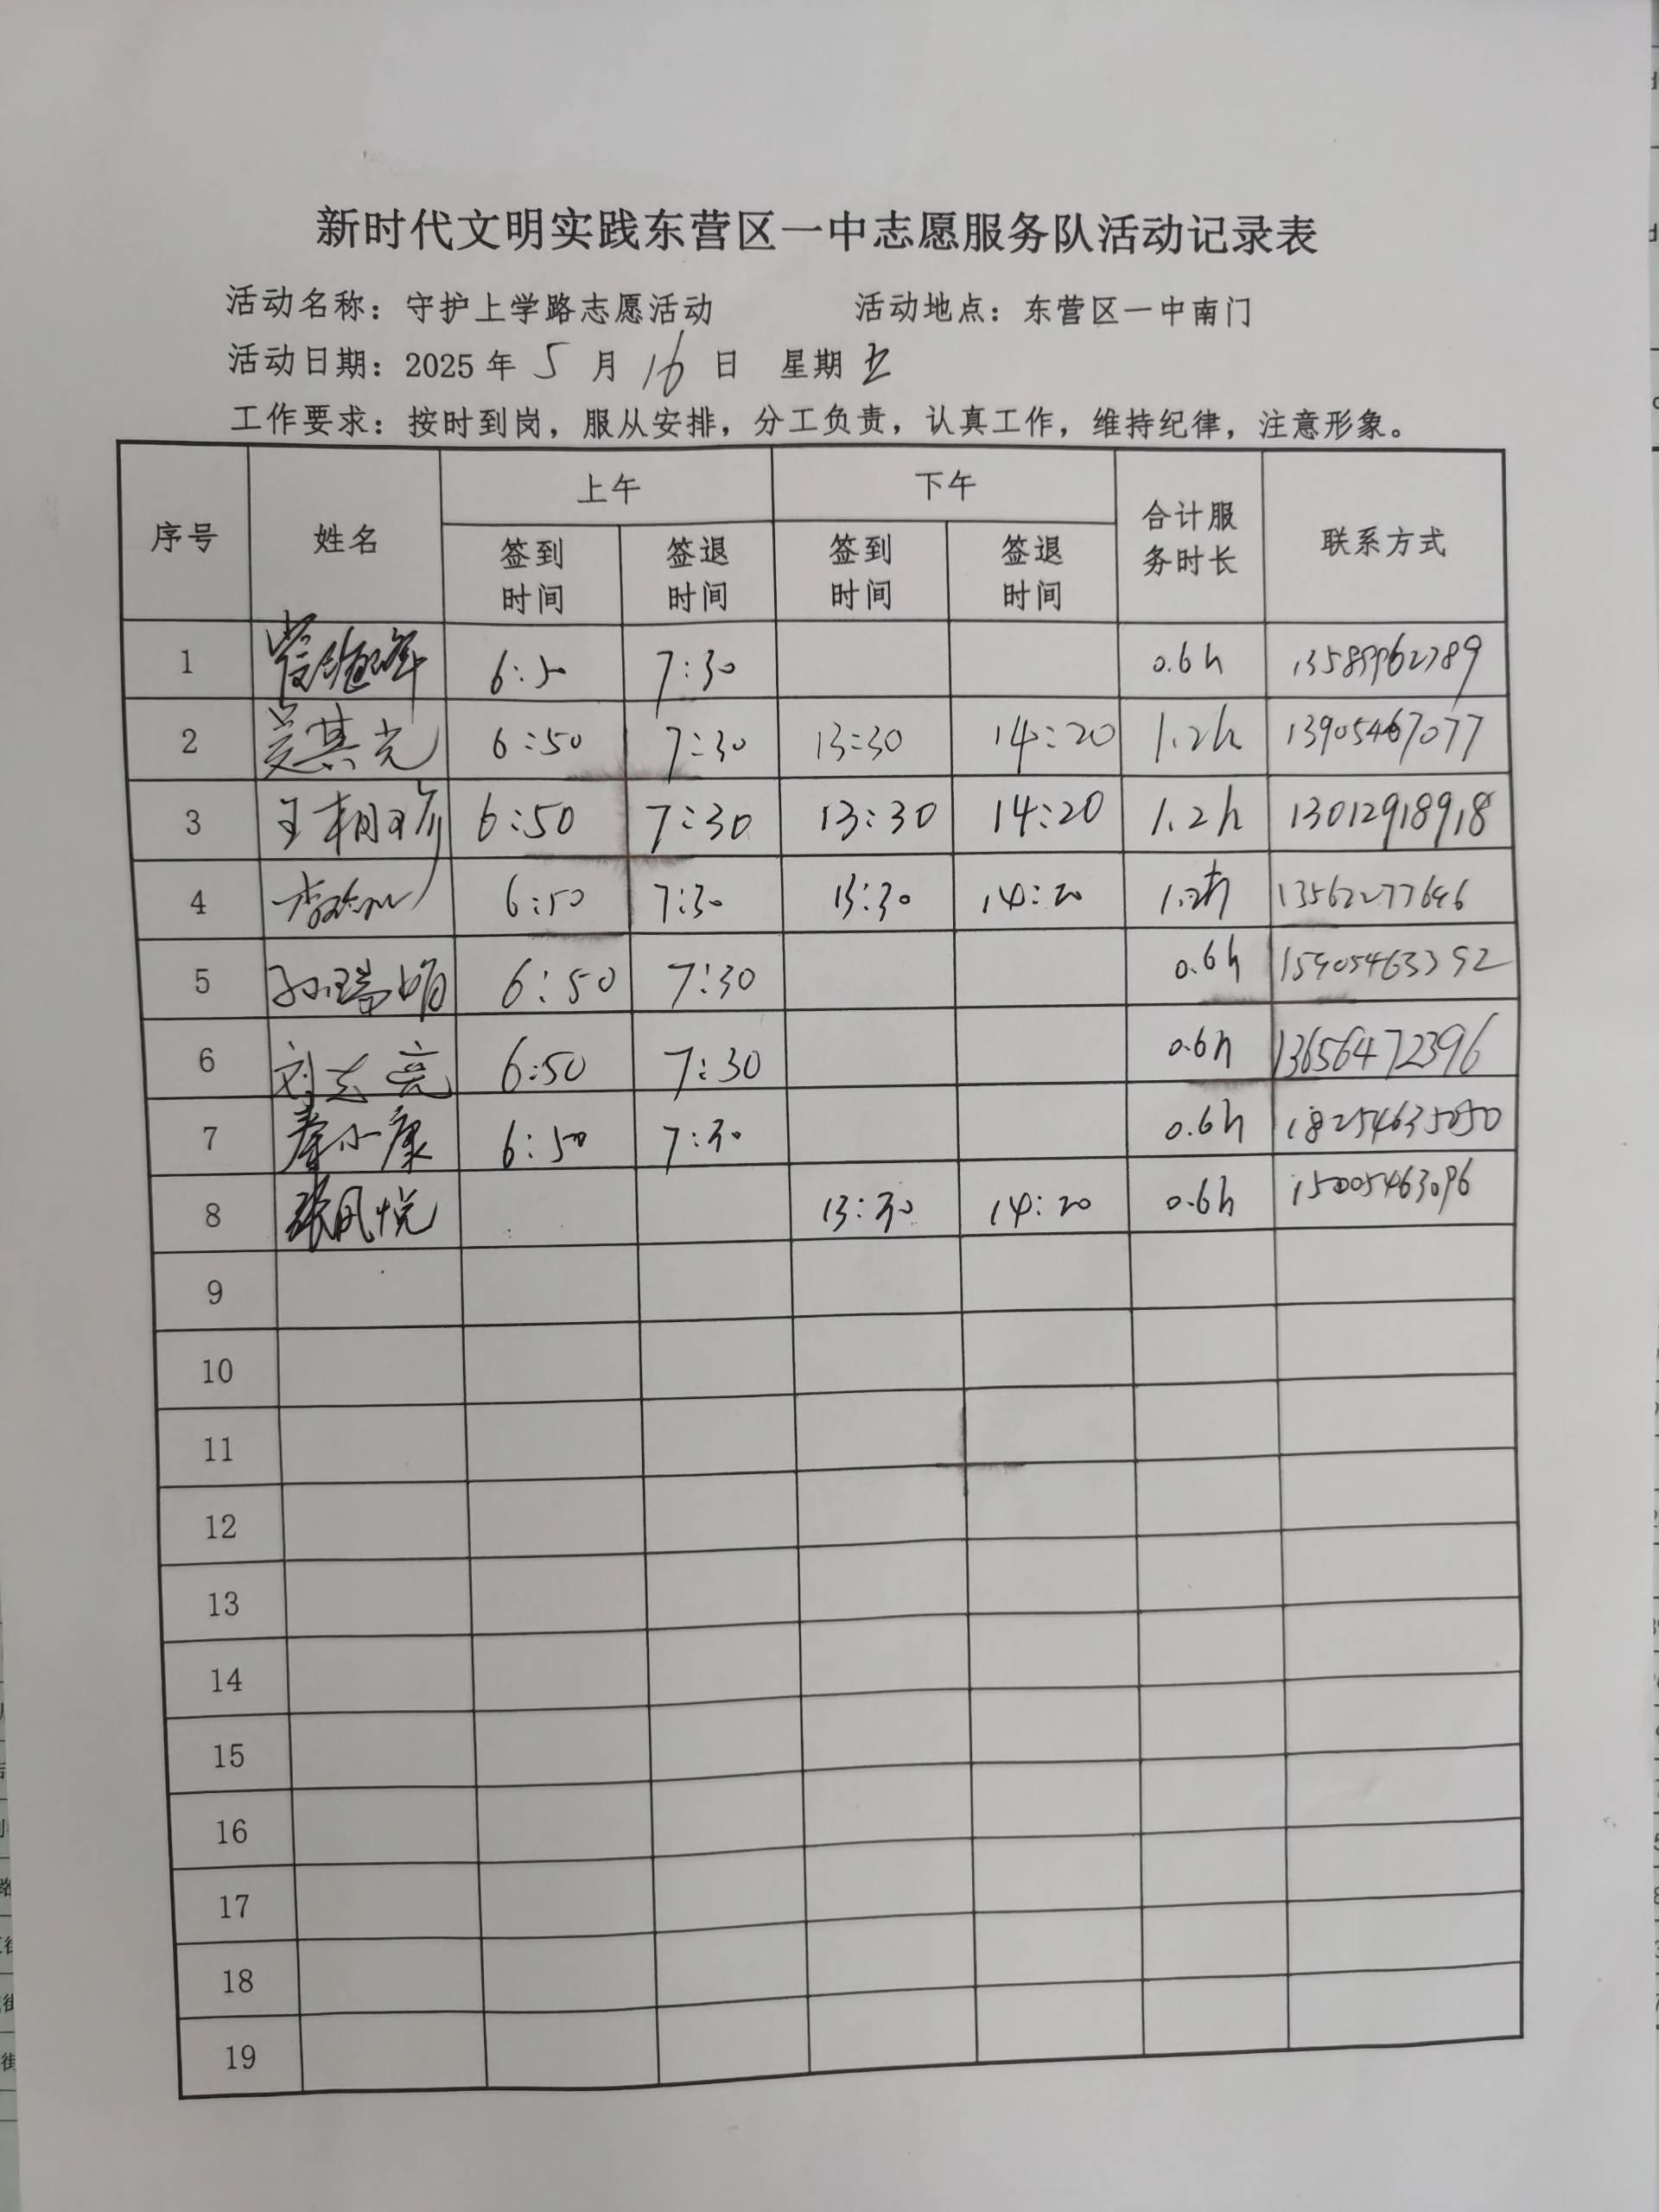 新时代文明实践东营区一中志愿服务队活动记录表
活动名称：守护上学路志愿活动 活动地点：东营区一中南门
活动日期：2025年5月16日 星期五
工作要求：按时到岗，服从安排，分工负责，认真工作，维持纪律，注意形象。
序号 姓名 上午 下午 合计服务时长 联系方式
签到时间 签退时间 签到时间 签退时间
1 6:50 7:30 0.6h 13589962789
2 吴其光 6:50 7:30 13:30 14:20 1.2h 13905467077
3 6:50 7:30 13:30 14:20 1.2h 13012918918
4 6:50 7:30 13:30 14:20 13562277646
5 孙瑞娟 6:50 7:30 0.6h 15905463392
6 刘志亮 6:50 7:30 0.6h 13656472396
7 秦小康 6:50 7:30 0.6h 18254635050
8 张凤悦 13:30 14:20 0.6h 15005463096
9
10
11
12
13
14
15
16
17
18
19